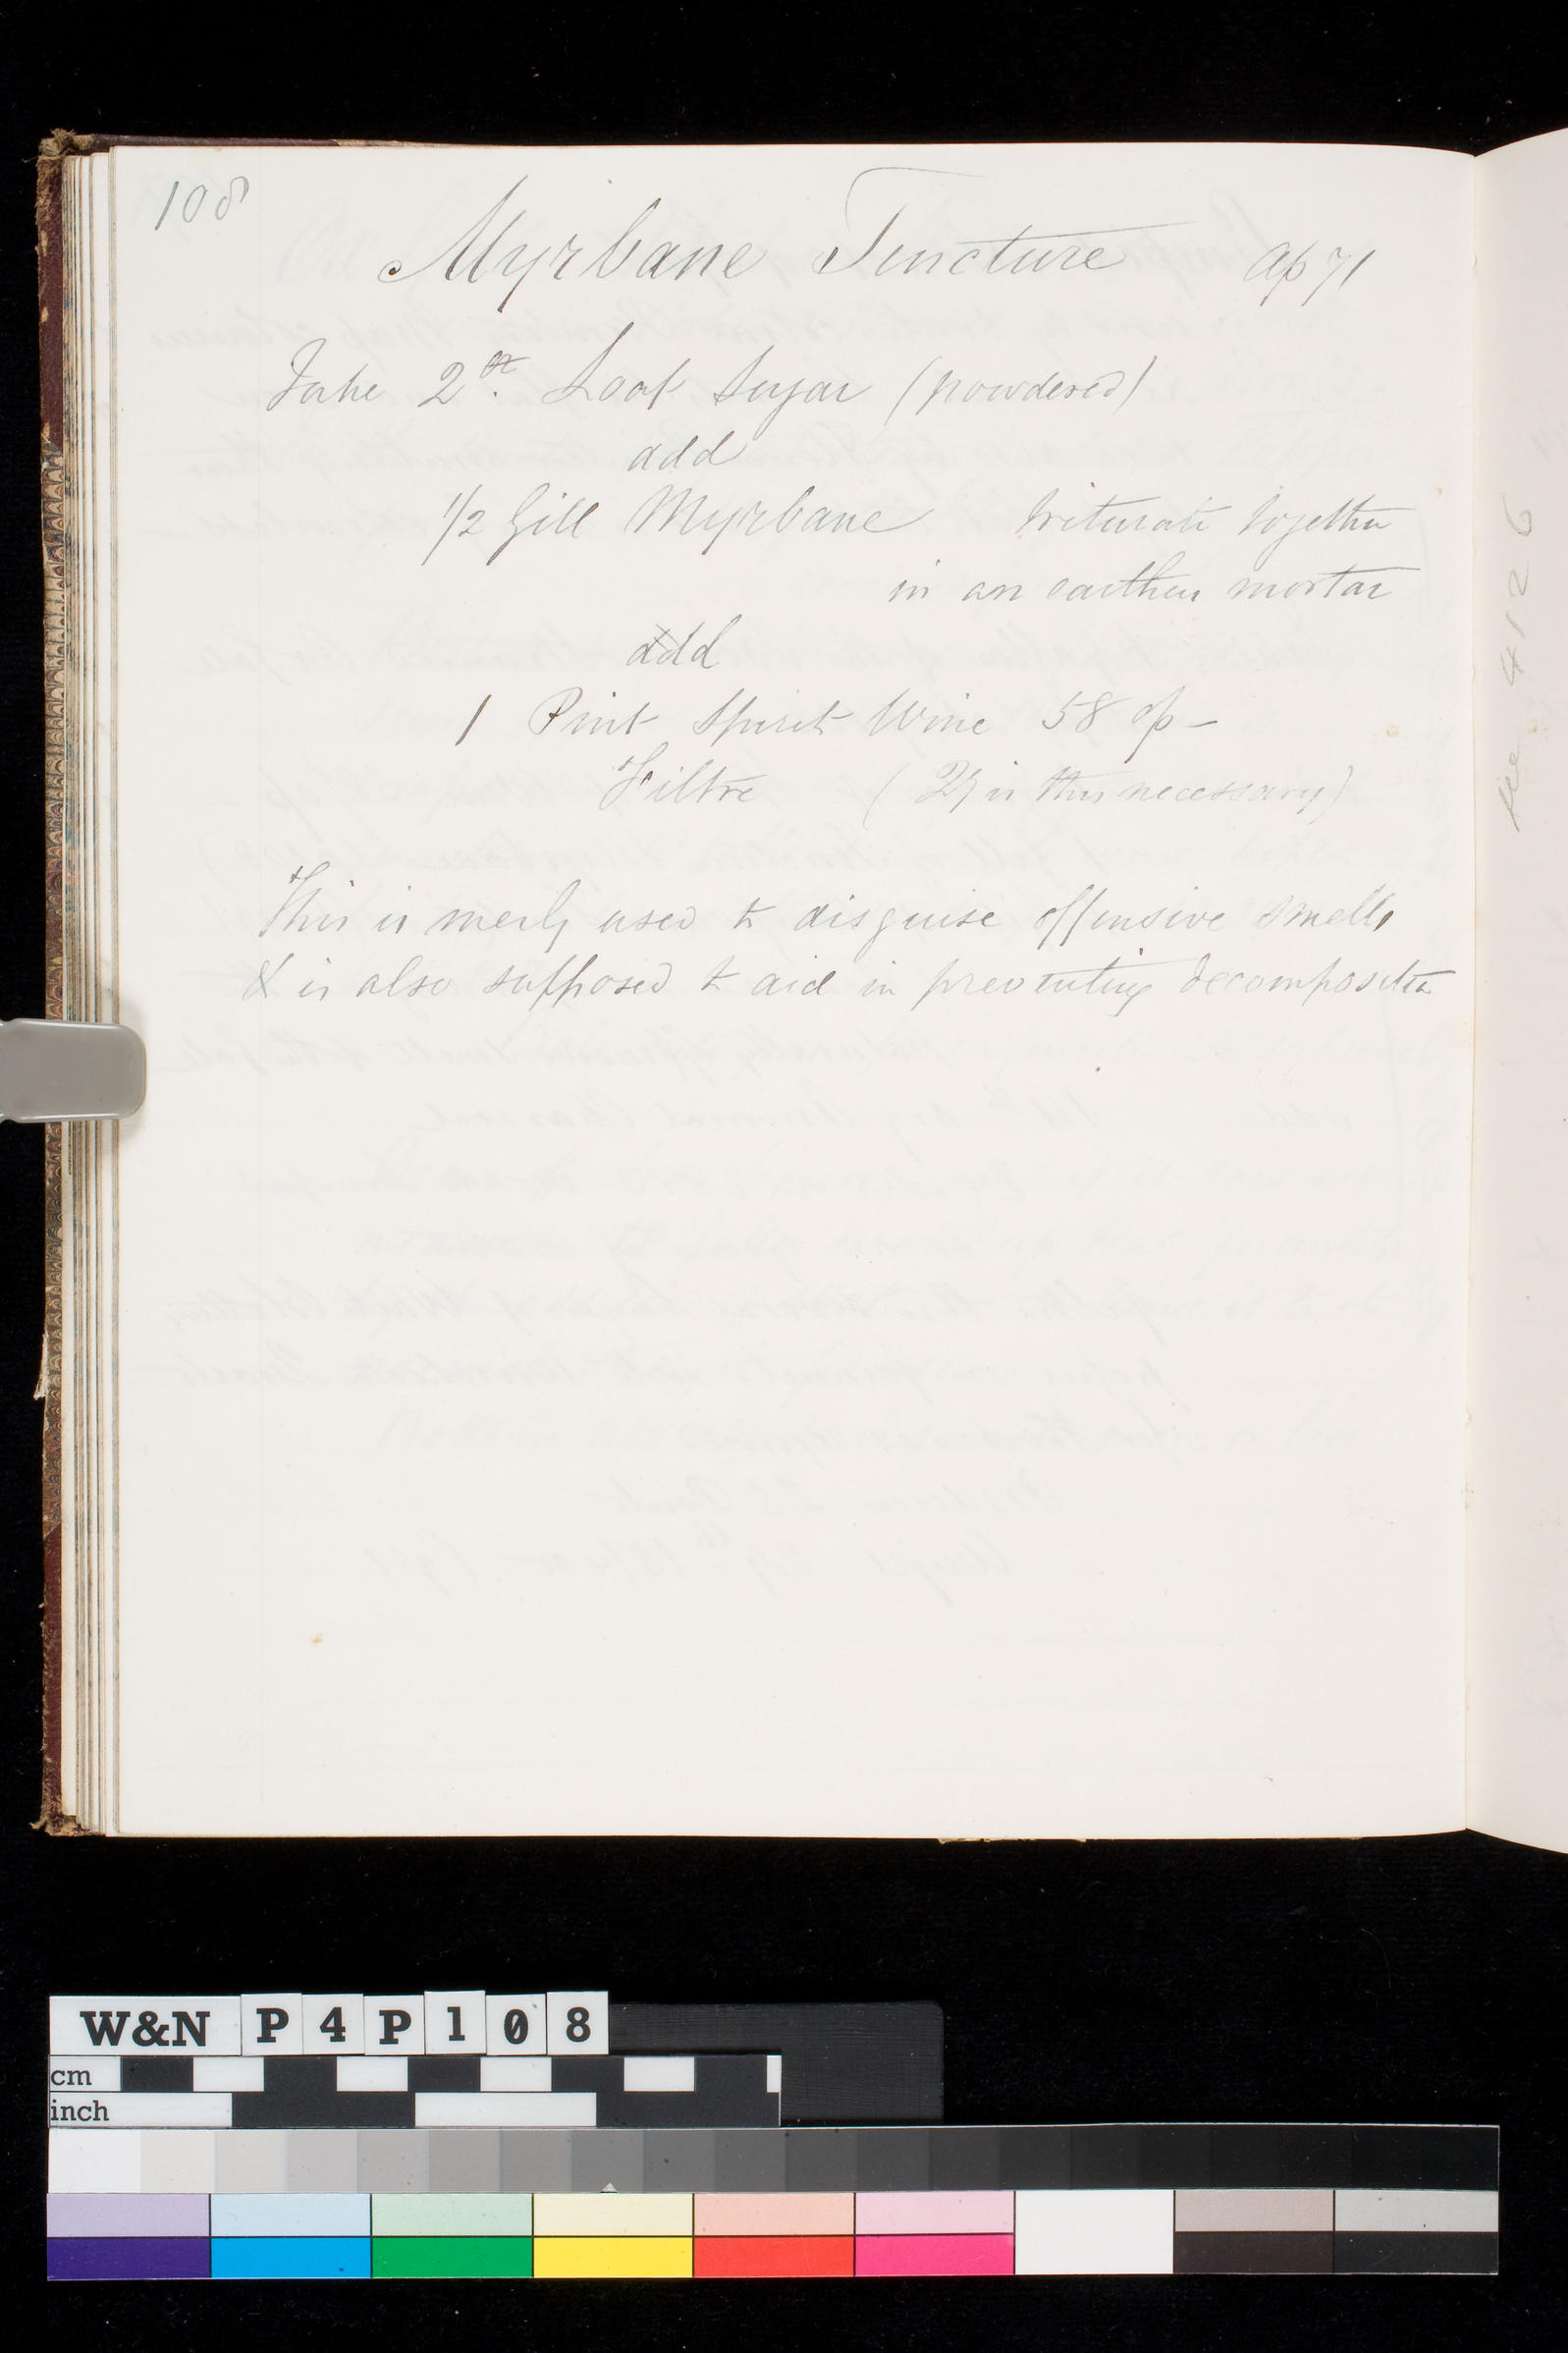 108
Myrbane Tincture ap 71
Take 2 oz. Loaf Sugar (powdered)
add
1/2 Gill Myrbane triturate together
in an earthen mortar
add
1 Pint Spirit Wine 58 op -
Filtre (Qy is this necessary)
This is merly used to disguise offensive smells
& is also supposed to aid in preventing decomposition
4126
W&N P4P108
cm
inch